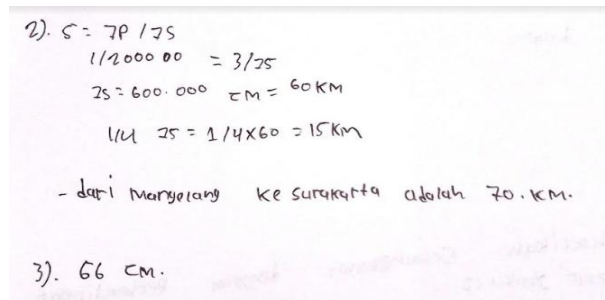 2). S = JP / JS
1/2000 00 = 3/JS
JS = 600.000 CM = 60 KM
1/4 JS = 1/4 x 60 = 15 KM
- dari Mangelang ke surakarta adalah 70. KM.
3). 66 CM.